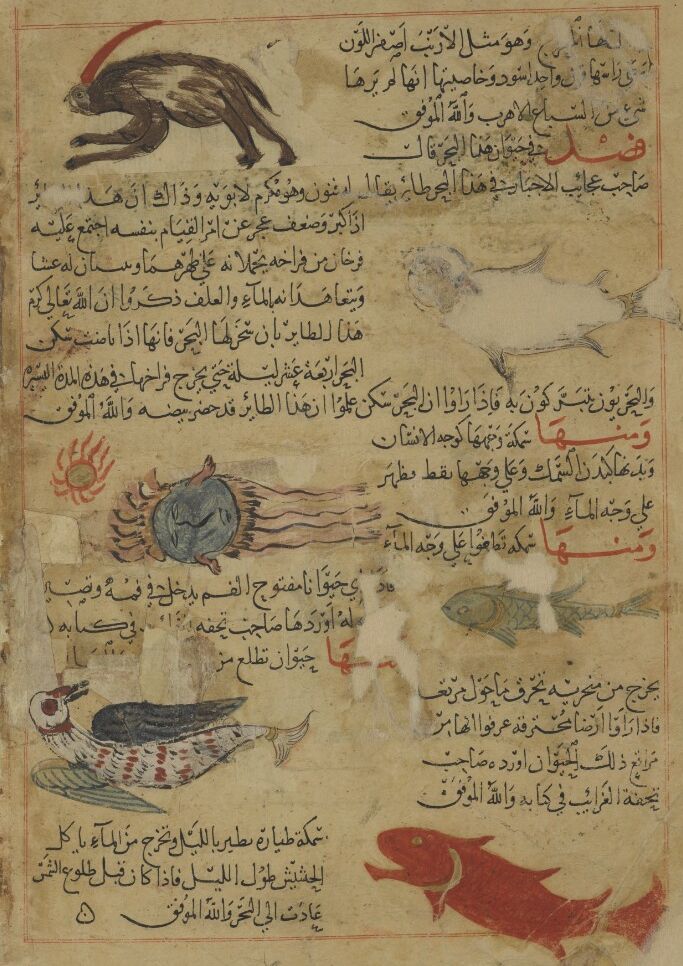 وهو مثل الأرنب أصفر اللون
قرن واحد اسود وخاصيتها انها لم يرها
شئ من السباع الا هرب والله الموفق
فصل في حيوان هذا البحر قال
صاحب عجايب الاخبار في هذا البحر طائر يقال وهو مكرم لابويه وذاك ان هذا
اذا كبر وضعف عجز عن امر القيام بنفسه اجتمع عليه
فرخان من فراخه يحملانه على ظهرهما له عشا
ويتعاهدانه بالماء والعلف ذكروا ان الله تعالى كرم
هذا الطاير بان سخر لها البحر فانها اذا باضت سكن
البحر اربعة عشر ليلة حتى يخرج فراخها في هذه المدة اليسيرة
والبحريون يتبركون به فاذا راوا ان البحر سكن علموا ان هذا الطائر قد حضر بيضه والله الموفق
ومنها سمكة وجهها كوجه الانسان
وبدنها كبدن السمك وعلى وجهها نقط يظهر
على وجه الماء والله الموفق
ومنها سمكة تطافوا على وجه الماء
حيوانا مفتوح الفم يدخل في فيه
اوردها صاحب تحفه في كتابه
حيوان تطلع من
يخرج من منخريه تحرق ما حول مرتعها
فاذا راوا ارضا محترقه عرفوا انها من
مراتع ذلك الحيوان اورده صاحب
تحفة الغرايب في كتابه والله الموفق
سمكة طيارة يطير بالليل وتخرج من الماء ياكل
الحشيش طول الليل فاذا كان قبل طلوع الشمس
عادت الى البحر والله الموفق